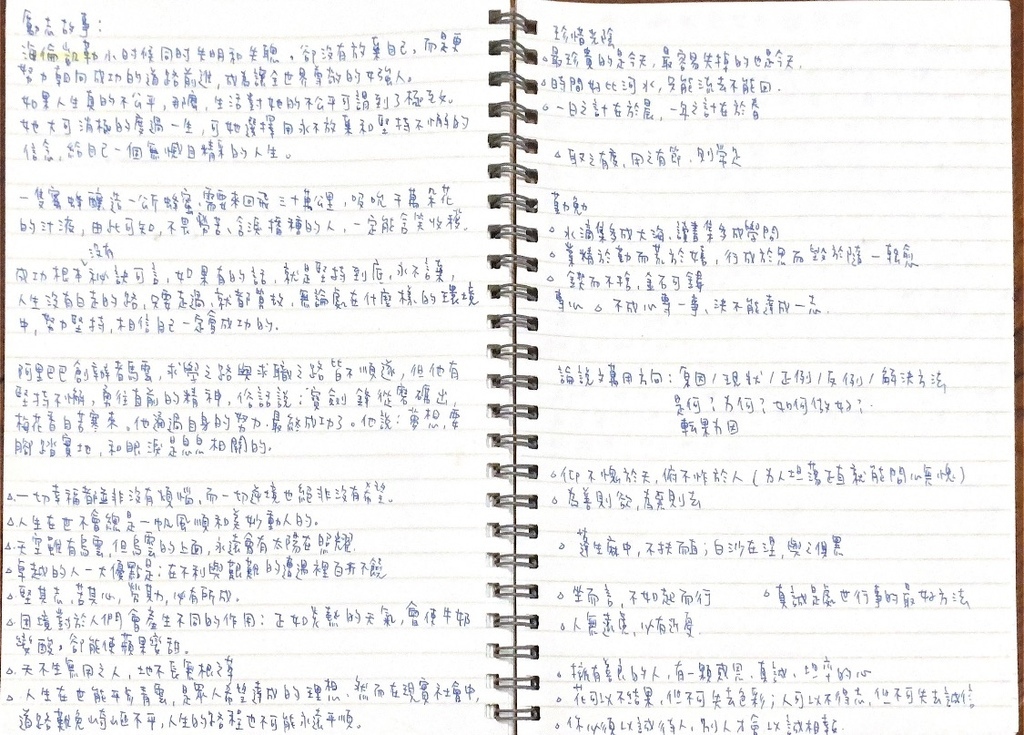 勵志故事：
海倫凱勒小时候同时失明和失聰，卻沒有放棄自己，而是更
努力朝向成功的道路前進，成為讓全世界尊敬的女強人。
如果人生真的不公平，那麼，生活對她的不公平可謂到了極至。
她大可消極的度過一生，可她選擇用永不放棄和堅持不懈的
信念，給自己一個無憾且精彩的人生。
一隻蜜蜂釀造一公斤蜂蜜，需要來回飛三十萬公里，吸吮千萬朵花
的汁液，由此可知，不畏勞苦、含淚播種的人，一定能含笑收穫。
成功根本沒有秘訣可言，如果有的話，就是堅持到底，永不言棄，
人生沒有白走的路，只要走過，就都算數，無論處在什麼樣的環境
中，努力堅持，相信自己一定會成功的。
阿里巴巴創辦者馬雲，求學之路與求職之路皆不順遂，但他有
堅持不懈，勇往直前的精神，俗話說：寶劍鋒從磨礪出，
梅花香自苦寒來。他通過自身的努力，最終成功了。他說：夢想，要
腳踏實地，和眼淚是息息相關的。
△一切幸福都並非沒有煩惱，而一切逆境也絕非沒有希望。
△人生在世不會總是一帆風順和美妙動人的。
△天空雖有烏雲，但烏雲的上面，永遠會有太陽在照耀。
△卓越的人一大優點是：在不利與艱難的遭遇裡百折不饒
△堅其志，苦其心，勞其力，必有所成。
△困境對於人們會產生不同的作用：正如炎熱的天氣，會使牛奶
變酸，卻能使蘋果變甜。
△天不生無用之人，地不長無根之草
△人生在世能平步青雲，是眾人希望達成的理想，然而在現實社會中，
道路難免崎嶇不平，人生的路程也不可能永遠平順。
珍惜光陰
△最珍貴的是今天，最容易失掉的也是今天。
△時間好比河水，只能流去不能回。
△一日之計在於晨，一年之計在於春
△取之有度，用之有節，則常足
勤勉
△水滴集多成大海，讀書集多成學問
△業精於勤而荒於嬉，行成於思而毀於隨－韓愈
△鍥而不捨，金石可鏤
專心 △不成心專一事，決不能達成一志。
論說文萬用方向：原因/現狀/正例/反例/解決方法
是何？為何？如何做好？
轉果為因
△仰不愧於天，俯不怍於人（為人坦蕩正直就能問心無愧）
△為善則欲，為惡則去
△蓬生麻中，不扶而直；白沙在涅，與之俱黑
△坐而言，不如起而行 △真誠是處世行事的最好方法
△人無遠慮，必有近憂。
△擁有善良的人，有一顆感恩、真誠、坦率的心
△花可以不結果，但不可失去色彩；人可以不得志，但不可失去誠信
△你必須以誠待人，別人才會以誠相報。